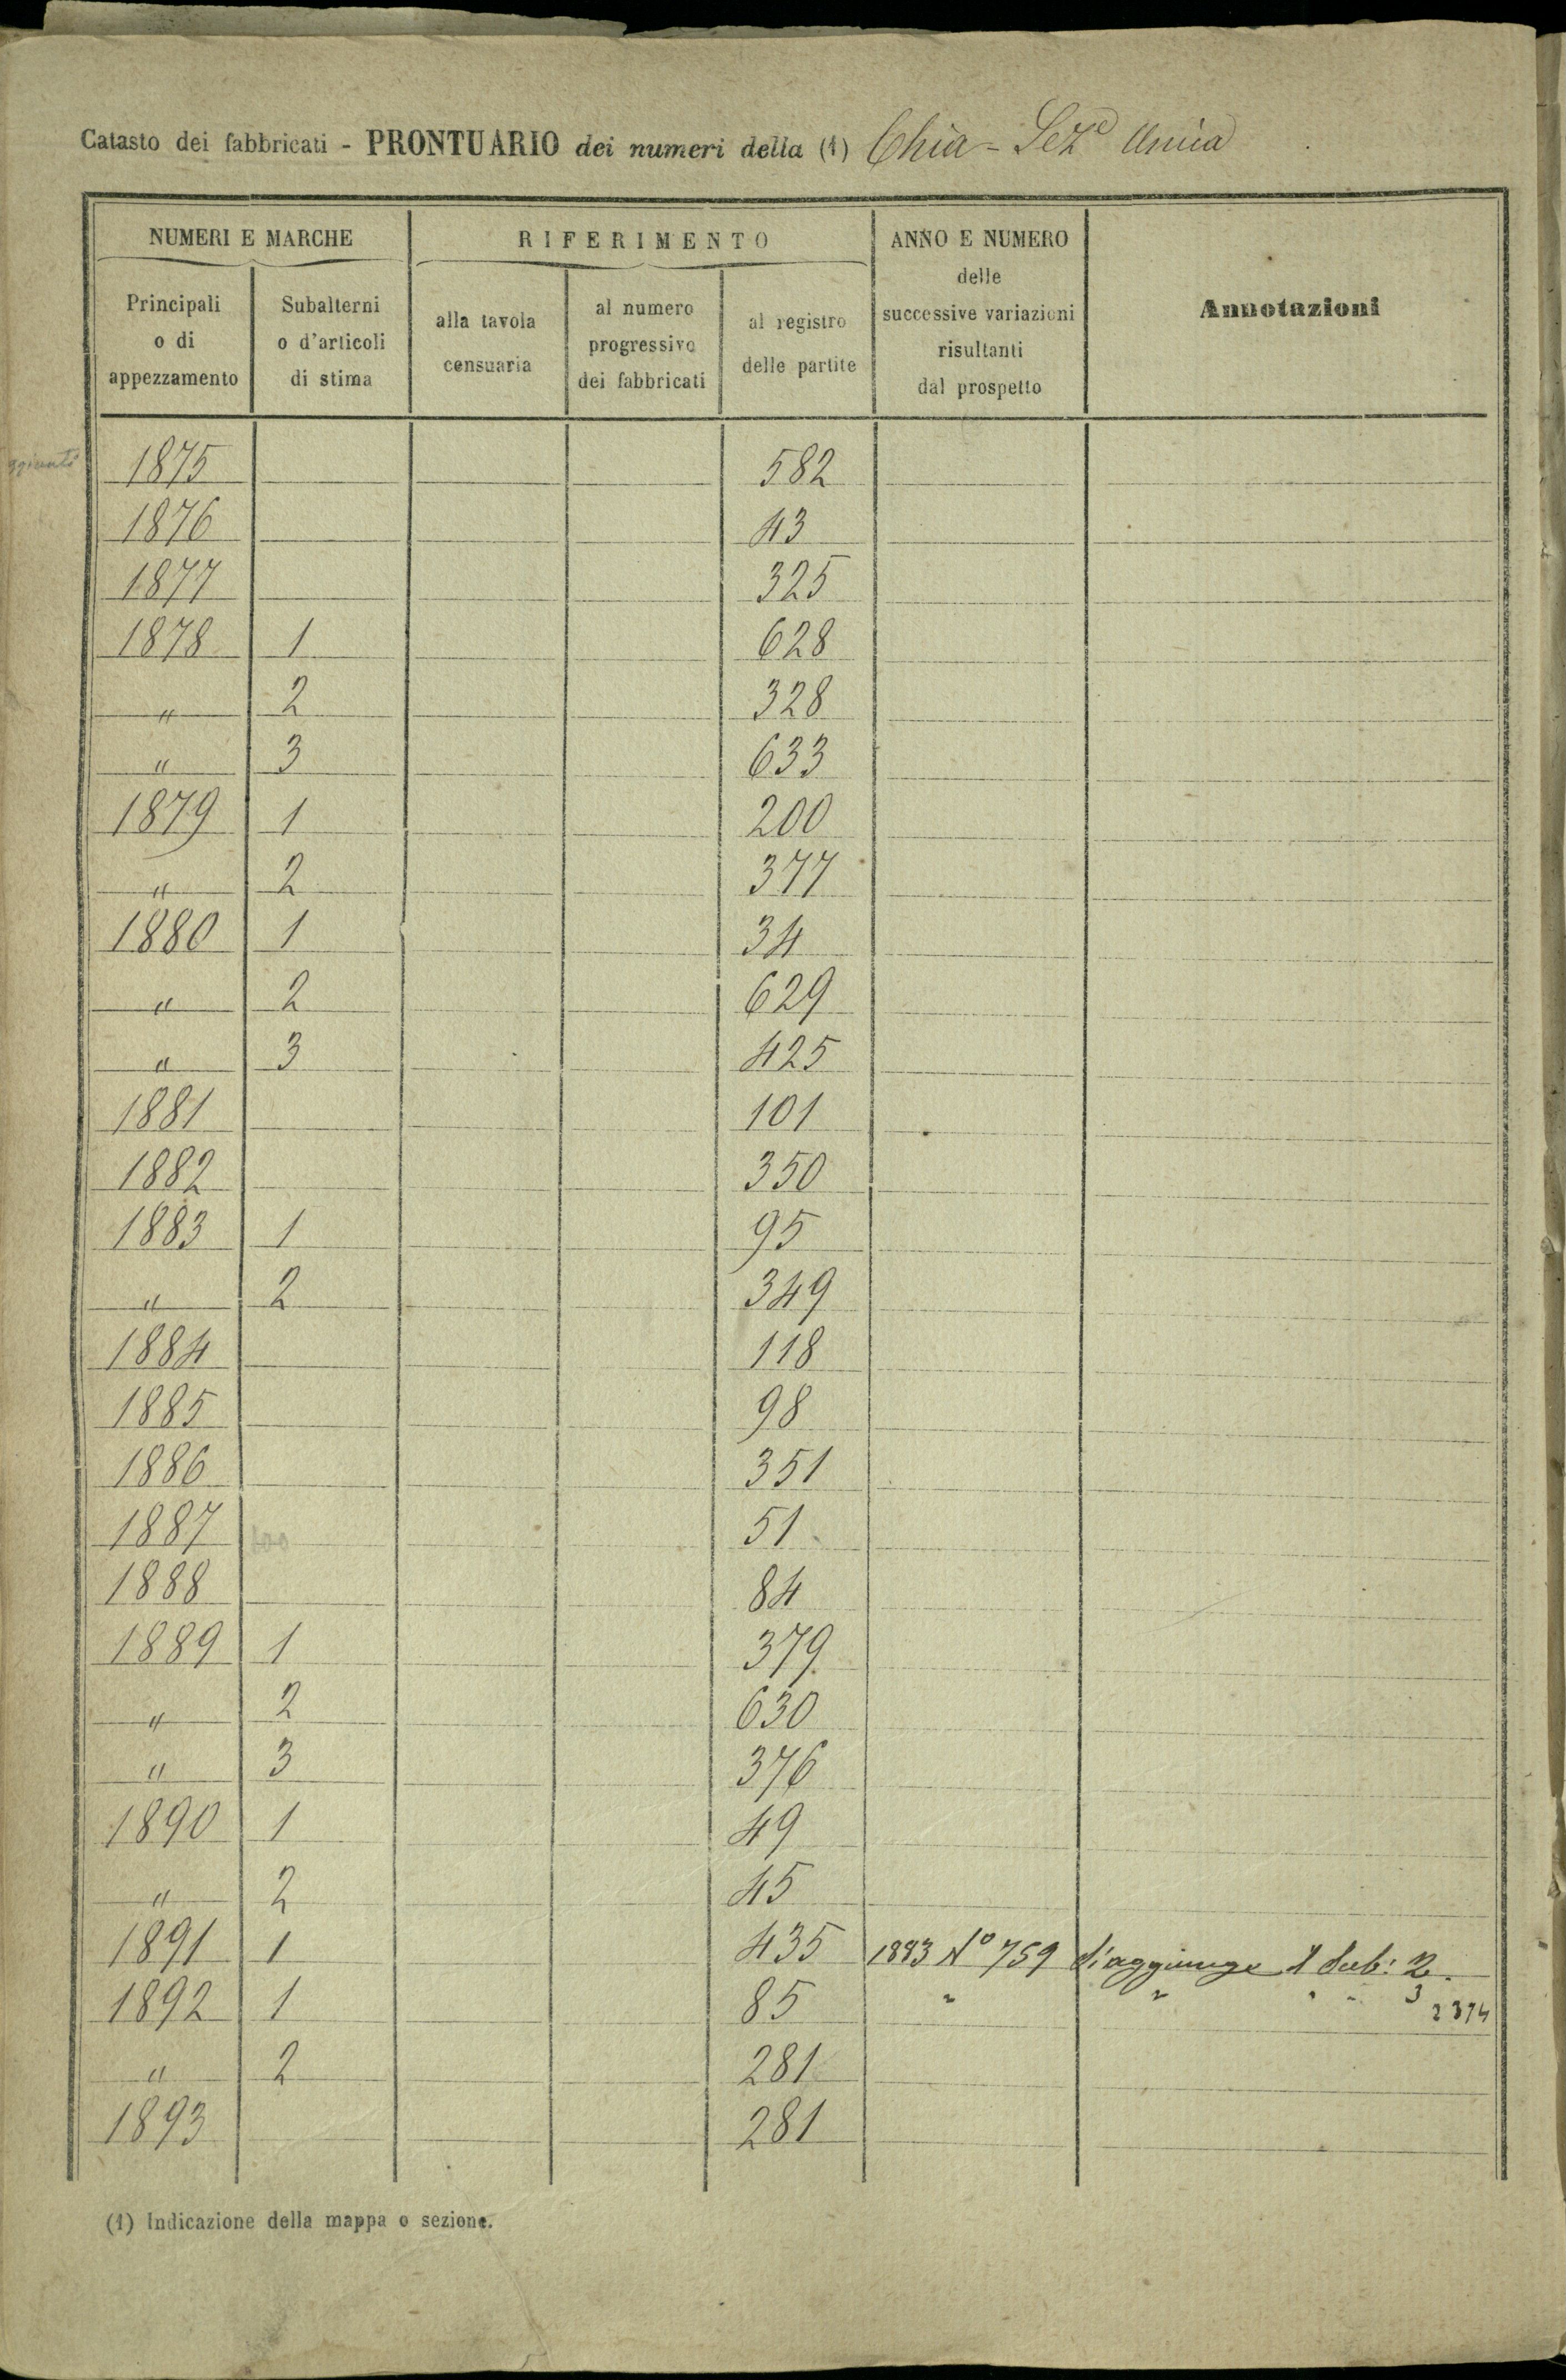 Catasto dei fabbricati - PRONTUARIO dei numeri della (1) Chia - Sez.e Unica
NUMERI E MARCHE
RIFERIMENTO
ANNO E NUMERO
delle
successive variazioni
risultanti
dal prospetto
Annotazioni
Principali
o di
appezzamento
Subalterni
o d'articoli
di stima
alla tavola
censuaria
al numero
progressivo
dei fabbricati
al registro
delle partite
1875 582
1876 43
1877 325
1878 1 628
" 2 328
" 3 633
1879 1 200
" 2 377
1880 1 34
" 2 629
" 3 425
1881 101
1882 350
1883 1 95
" 2 349
1884 118
1885 98
1886 351
1887 51
1888 84
1889 1 379
" 2 630
" 3 376
1890 1 49
" 2 45
1891 1 435 1883 No 759 S'aggiunge il sub: 2.
1892 1 85 " " " " 3
" 2 281
1893 281
(1) Indicazione della mappa o sezione.